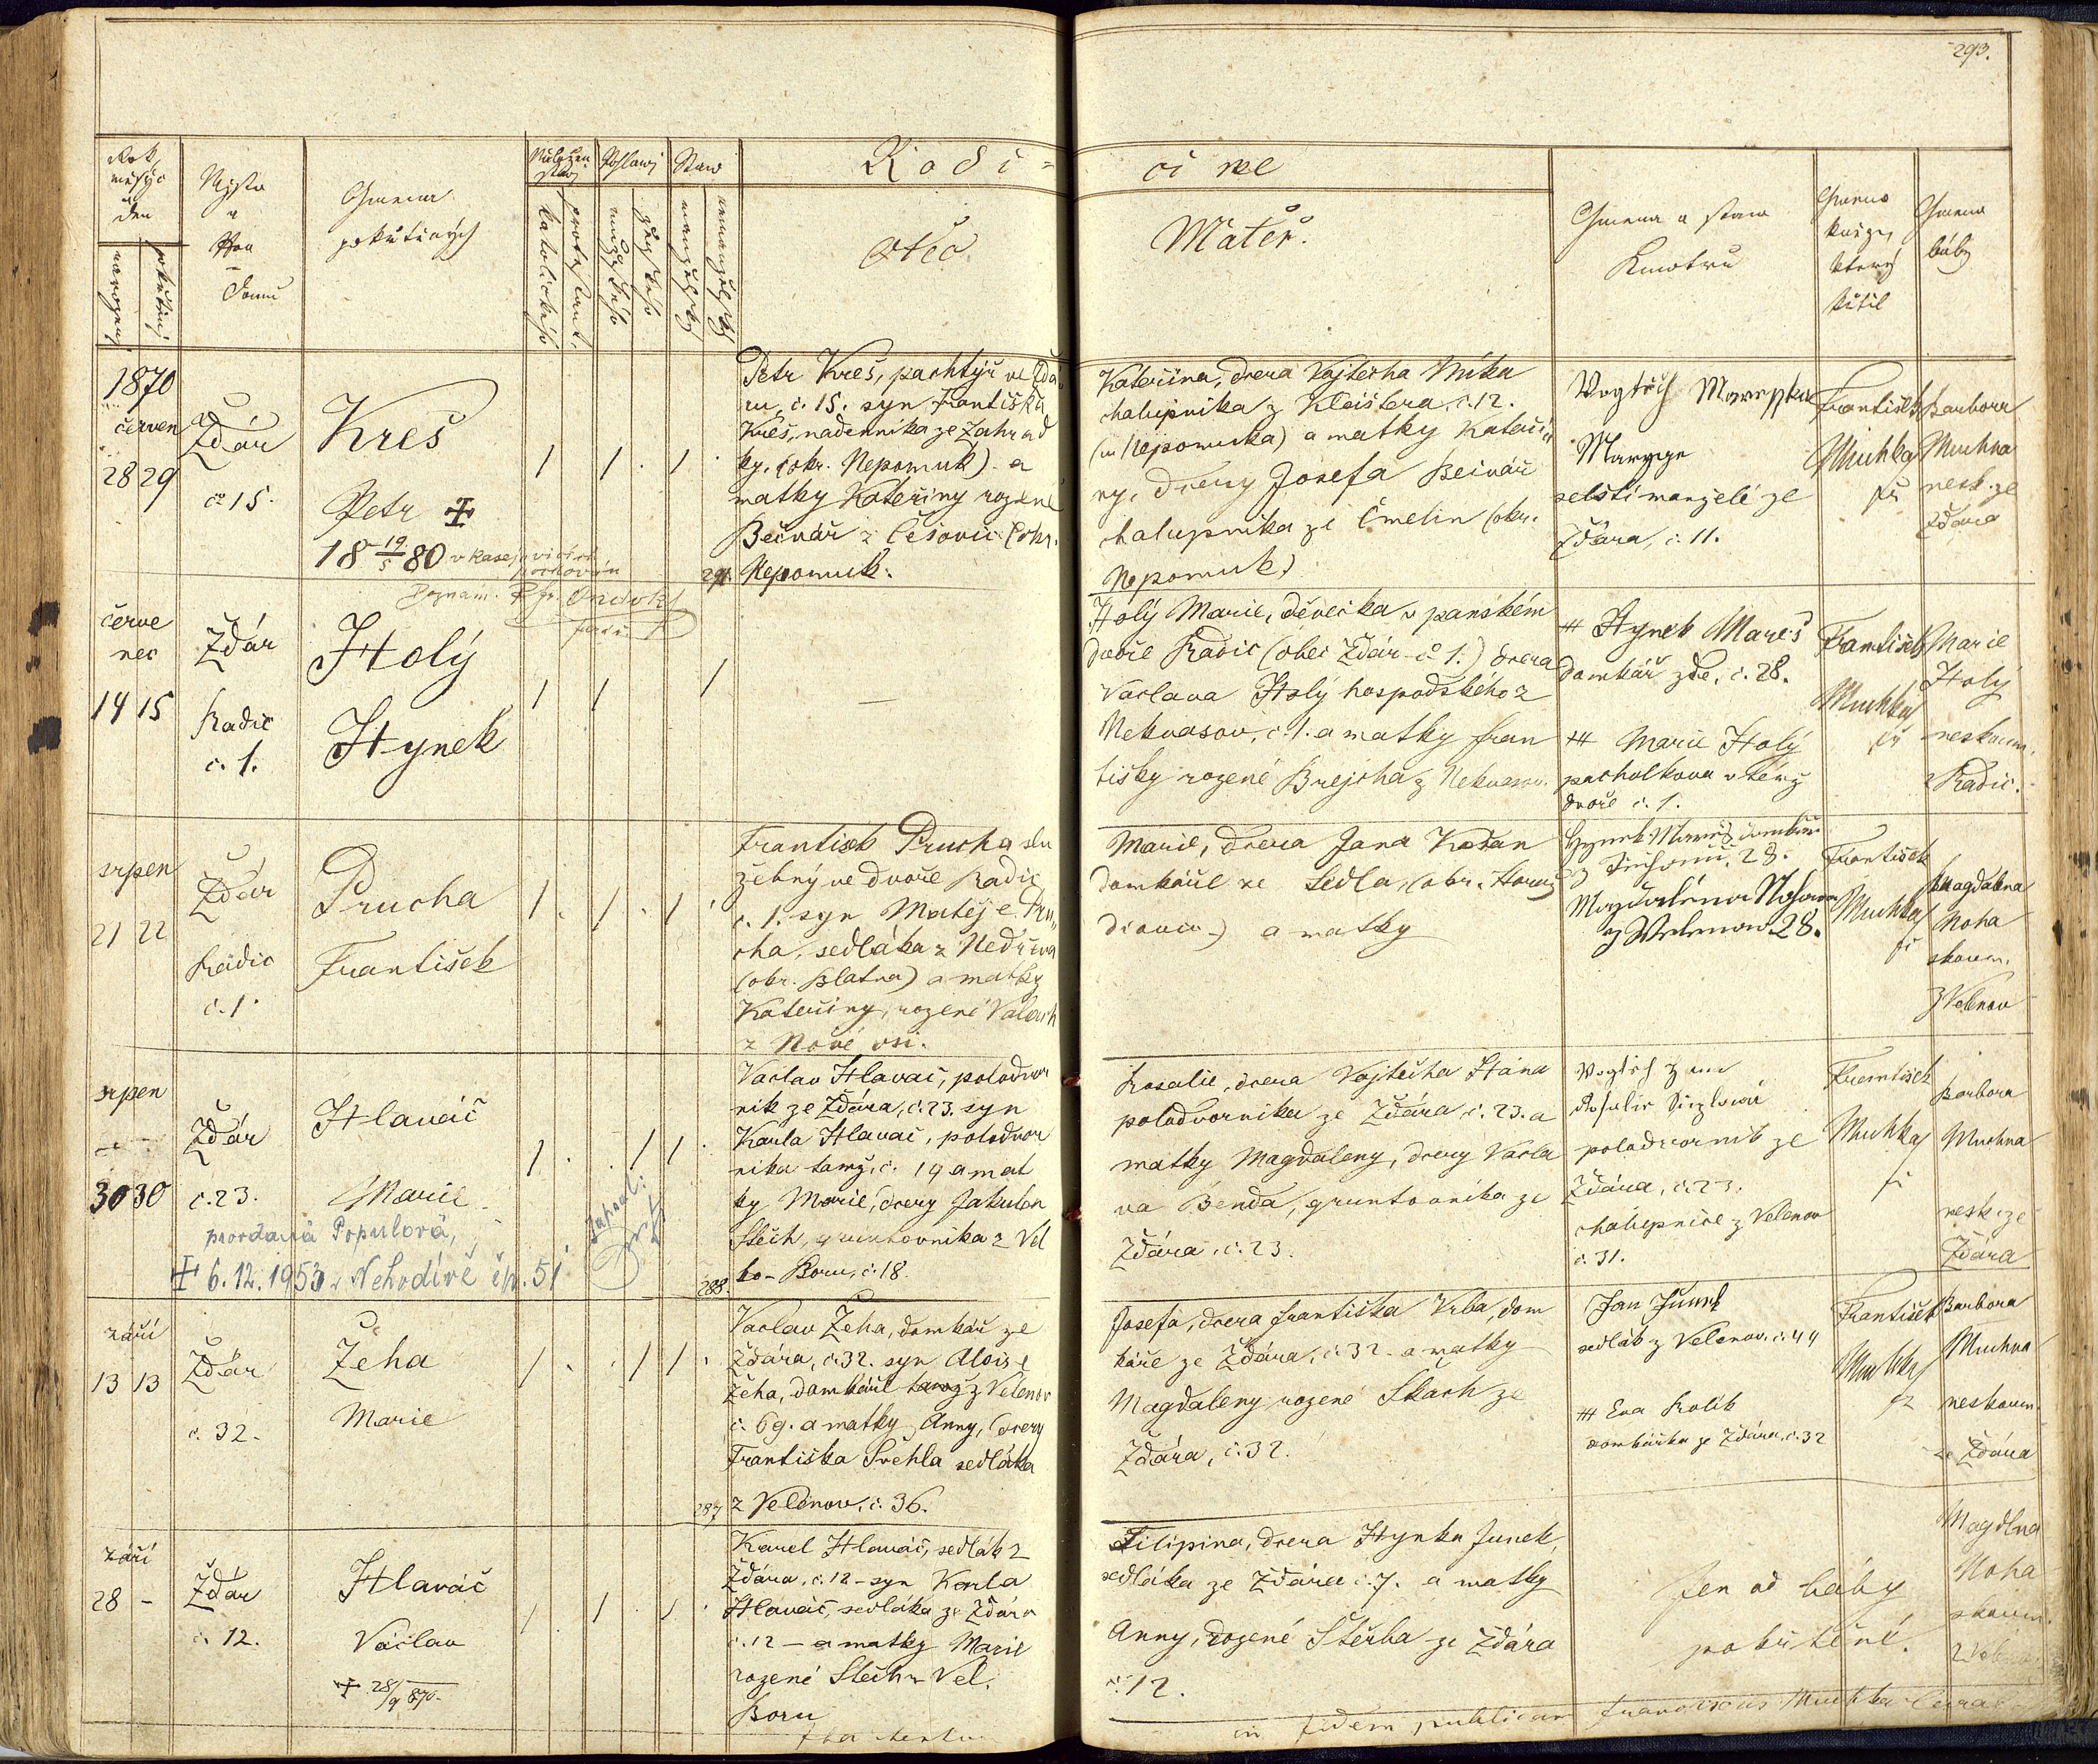 293.
Rok, měsyc a den
narozený
pokřtěný
Mjsto a Čjslo Domu
Gmena pokřtěných
Náboženstwj
katolického
protestant.
Pohlawj
mužského
ženského
Staw
manželský
nemanželský
Rodi=
čowé
Otec
Matěř.
Gmena a staw Kmotrů
Gmeno kněze, který křtil
Gmeno báby
1870
červen
28 29
Žďár
č 15.
Kreš
Petr †
18 19/5 80 v Kasejovicích
pochován
Poznam.
Petr Kreš, pachtýř ve Žďá
ru, č. 15. syn Františka
Kreš, nádenníka ze Zahrád
ky, (okr. Nepomuk) a
matky Kateřiny rozené
Bečvář z Čečovic (okr.
Nepomuk.
Kateřina, dcera Vojtěcha Mika
chalupníka z Kleištera č. 12.
(u Nepomuka) a matky Kateři
ny, dcery Josefa Bečvář
chalupníka ze Čmelin (okr.
Nepomuk)
Marye
selští manželé ze
Žďára, č. 11.
František
Muchka
Barbora
Muchna
nesk. ze
Žďára
červe
nec
14 15
Žďár
Radič
č. 1.
Holý
Hynek
Holý Marie, děvečka v panském
dvoře Radič (obec Žďár č 1.) dcera
Václava Holý hospodského z
Nekvasov, č. 1. a matky Fran
tišky rozené Brejcha z Nekvasov.
+++ Hynek Mareš
domkář zde, č. 28.
+++ Marie Holý
pacholkova v témž
dvoře č. 1.
František
Muchka
Marie
Holý
neskoum.
z Radič.
srpen
21 22
Žďár
Radič
č. 1.
Prucha
František
František Prucha slu
žebný ve dvoře Radič
č. 1. syn Matěje Pru
cha, sedláka z Nedřeva
(okr. Blatna) a matky
Kateřiny, rozené Valach
z Nové vsi.
Marie, dcera Jana Kořan
domkáře ze Sedla, (okr. Horaž
diovic) a matky
Hynek Mareš domkář
28.
Magdaléna Nohova
z Welenov 28.
František
Muchka
Magdalena
Noha
skoum.
z Velenov
srpen
30 30
Žďár
č. 23.
Hlaváč
Marie
provdaná Popules​ová,
† 6.12.1953 v Nehodívě čp. 51
zapsal:
288.
Václav Hlaváč, polodvor
ník ze Žďára, č. 23. syn
Karla Hlaváč, polodvor
níka tamž, č. 19 a mat
ky Marie, dcery Jakuba
Šlech, gruntovníka z Vel
ko-Boru, č. 18.
Rosalie, dcera Vojtěcha Hána
polodvorníka ze Žďára, č. 23. a
matky Magdaleny, dcery Václa
va Benda, gruntovníka ze
Žďára, č. 23.
polodvorník ze
Žďára, č. 23.
chalupnice z Velenov
č. 31.
František
Muchka
Barbora
Muchna
nesk. ze
Žďára
září
13 13
Žďár
č. 32.
Žeha
Marie
287
Václav Žeha, domkář ze
Žďára, č. 32. syn Aloise
Žeha, domkáře tamž z Velenov
č. 69. a matky Anny, dcery
Františka Švehla sedláka
z Velenov, č. 36.
Josefa, dcera Františka Vrba, dom
káře ze Žďára, č. 32. a matky
Magdaleny rozené Skach ze
Žďára, č. 32.
Jan Junek
sedlák z Velenov č. 44
+++ Eva Králík
domkářka ze Žďára, č. 32
František
Muchka
Barbora
Muchna
neskoum.
ze Žďára
září
28 -
Žďár
č. 12.
Hlaváč
Václav
† 28/9 870.
Karel Hlaváč, sedlák z
Žďára, č. 12 - syn Karla
Hlaváč, sedláka ze Žďára
č. 12 - a matky Marie
rozené Šlech z Vel.
Boru
Filipina, dcera Hynka Junek,
sedláka ze Žďára č. 7. a matky
Anny, rozené Štěrba ze Žďára
č. 12.
Jen od báby
pokřtěné.
Magdlna
Noha
skoum.
in fidem publicam Franciscus Muchka